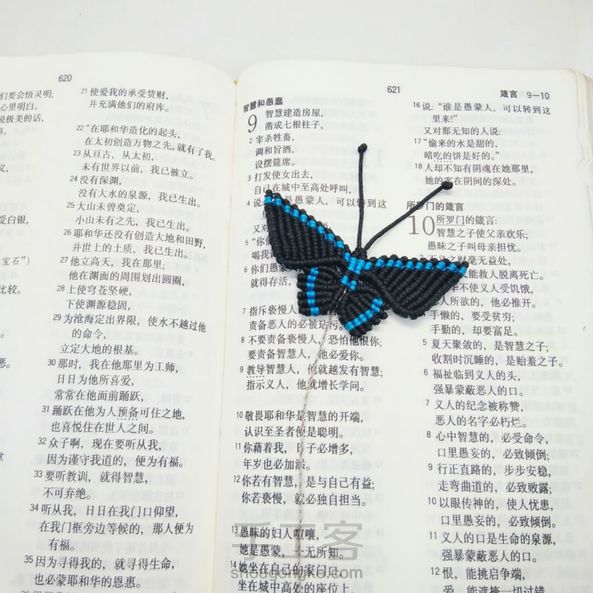 620
们要会悟灵明;
心里明白。
说极美的话,
21 使爱我的承受货财,
并充满他们的府库。
22 “在耶和华造化的起头,
在太初创造万物之先,就有了我。
23 从亘古,从太初,
未有世界以前,我已被立。
24 没有深渊,
没有大水的泉源,我已生出。
25 大山未曾奠定,
小山未有之先,我已生出。
26 耶和华还没有创造大地和田野,
并世上的土质,我已生出。
27 他立高天,我在那里;
他在渊面的周围划出圆圈,
28 上使穹苍坚硬,
下使渊源稳固,
29 为沧海定出界限,使水不越过他
的命令,
立定大地的根基。
30 那时,我在他那里为工师,
日日为他所喜爱,
常常在他面前踊跃,
31 踊跃在他为人预备可住之地,
也喜悦住在世人之间。
32 众子啊,现在要听从我,
因为谨守我道的,便为有福。
33 要听教训,就得智慧,
不可弃绝。
34 听从我,日日在我门口仰望,
在我门框旁边等候的,那人便为
有福。
35 因为寻得我的,就寻得生命,
也必蒙耶和华的恩惠。
621
箴言 9—10
智慧和愚蠢
9 智慧建造房屋,
凿成七根柱子,
2 宰杀牲畜,
调和旨酒,
设摆筵席。
3 打发使女出去,
自己在城中至高处呼叫,
4 说:“谁是愚蒙人,可以转到这
5 “你们
6 你们愚蒙
就得存活,
7 指斥亵慢人
责备恶人的必被
8 不要责备亵慢人,恐怕他恨你;
要责备智慧人,他必爱你。
9 教导智慧人,他就越发有智慧;
指示义人,他就增长学问。
10 敬畏耶和华是智慧的开端,
认识至圣者便是聪明。
11 你藉着我,日子必增多,
年岁也必加添。
12 你若有智慧,是与自己有益;
你若亵慢,就必独自担当。
13 愚昧的妇人喧嚷,
她是愚蒙,一无所知。
14 她坐在自己的家门口,
坐在城中高处的座位上,
16 说:“谁是愚蒙人,可以转到这
里来!”
又对那无知的人说:
17 “偷来的水是甜的,
暗吃的饼是好的。”
18 人却不知有阴魂在她那里,
她的客在阴间的深处。
所罗门的箴言
10 所罗门的箴言:
智慧之子使父亲欢乐;
愚昧之子叫母亲担忧。
之财毫无益处,
能救人脱离死亡。
华不使义人受饥饿,
人所欲的,他必推开。
手懒的,要受贫穷;
手勤的,却要富足。
5 夏天聚敛的,是智慧之子;
收割时沉睡的,是贻羞之子。
6 福祉临到义人的头,
强暴蒙蔽恶人的口。
7 义人的纪念被称赞,
恶人的名字必朽烂。
8 心中智慧的,必受命令,
口里愚妄的,必致倾倒。
9 行正直路的,步步安稳,
走弯曲道的,必致败露;
10 以眼传神的,使人忧患,
口里愚妄的,必致倾倒。
11 义人的口是生命的泉源,
强暴蒙蔽恶人的口。
12 恨,能挑启争端,
爱,能遮掩一切过错
手工客
shougongke.com